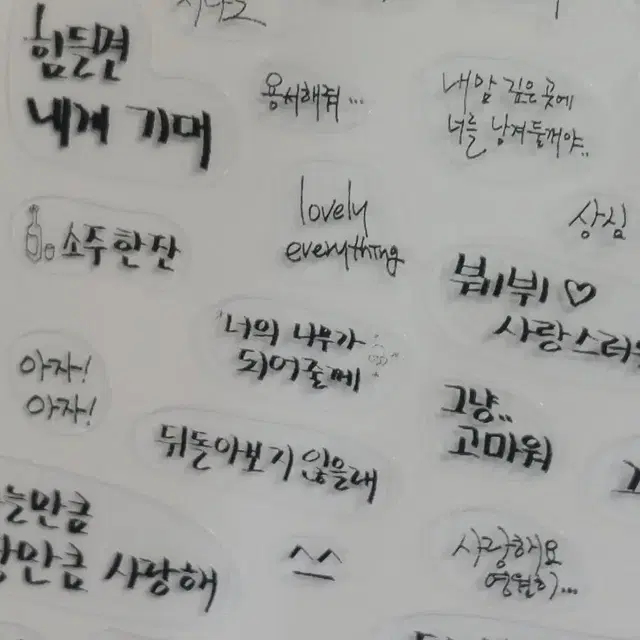 힘들면
네게 기대
용서해줘...
내 맘 깊은 곳에
너를 남겨둘게야..
lovely
everything
상심
소주한잔
봄비뷔♡
사랑스러워
너의 나무가
되어줄께
아자!
아자!
그냥..
고마워
뒤돌아보지 않을래
하늘만큼
땅만큼 사랑해
^_^
사랑해요
영원히...